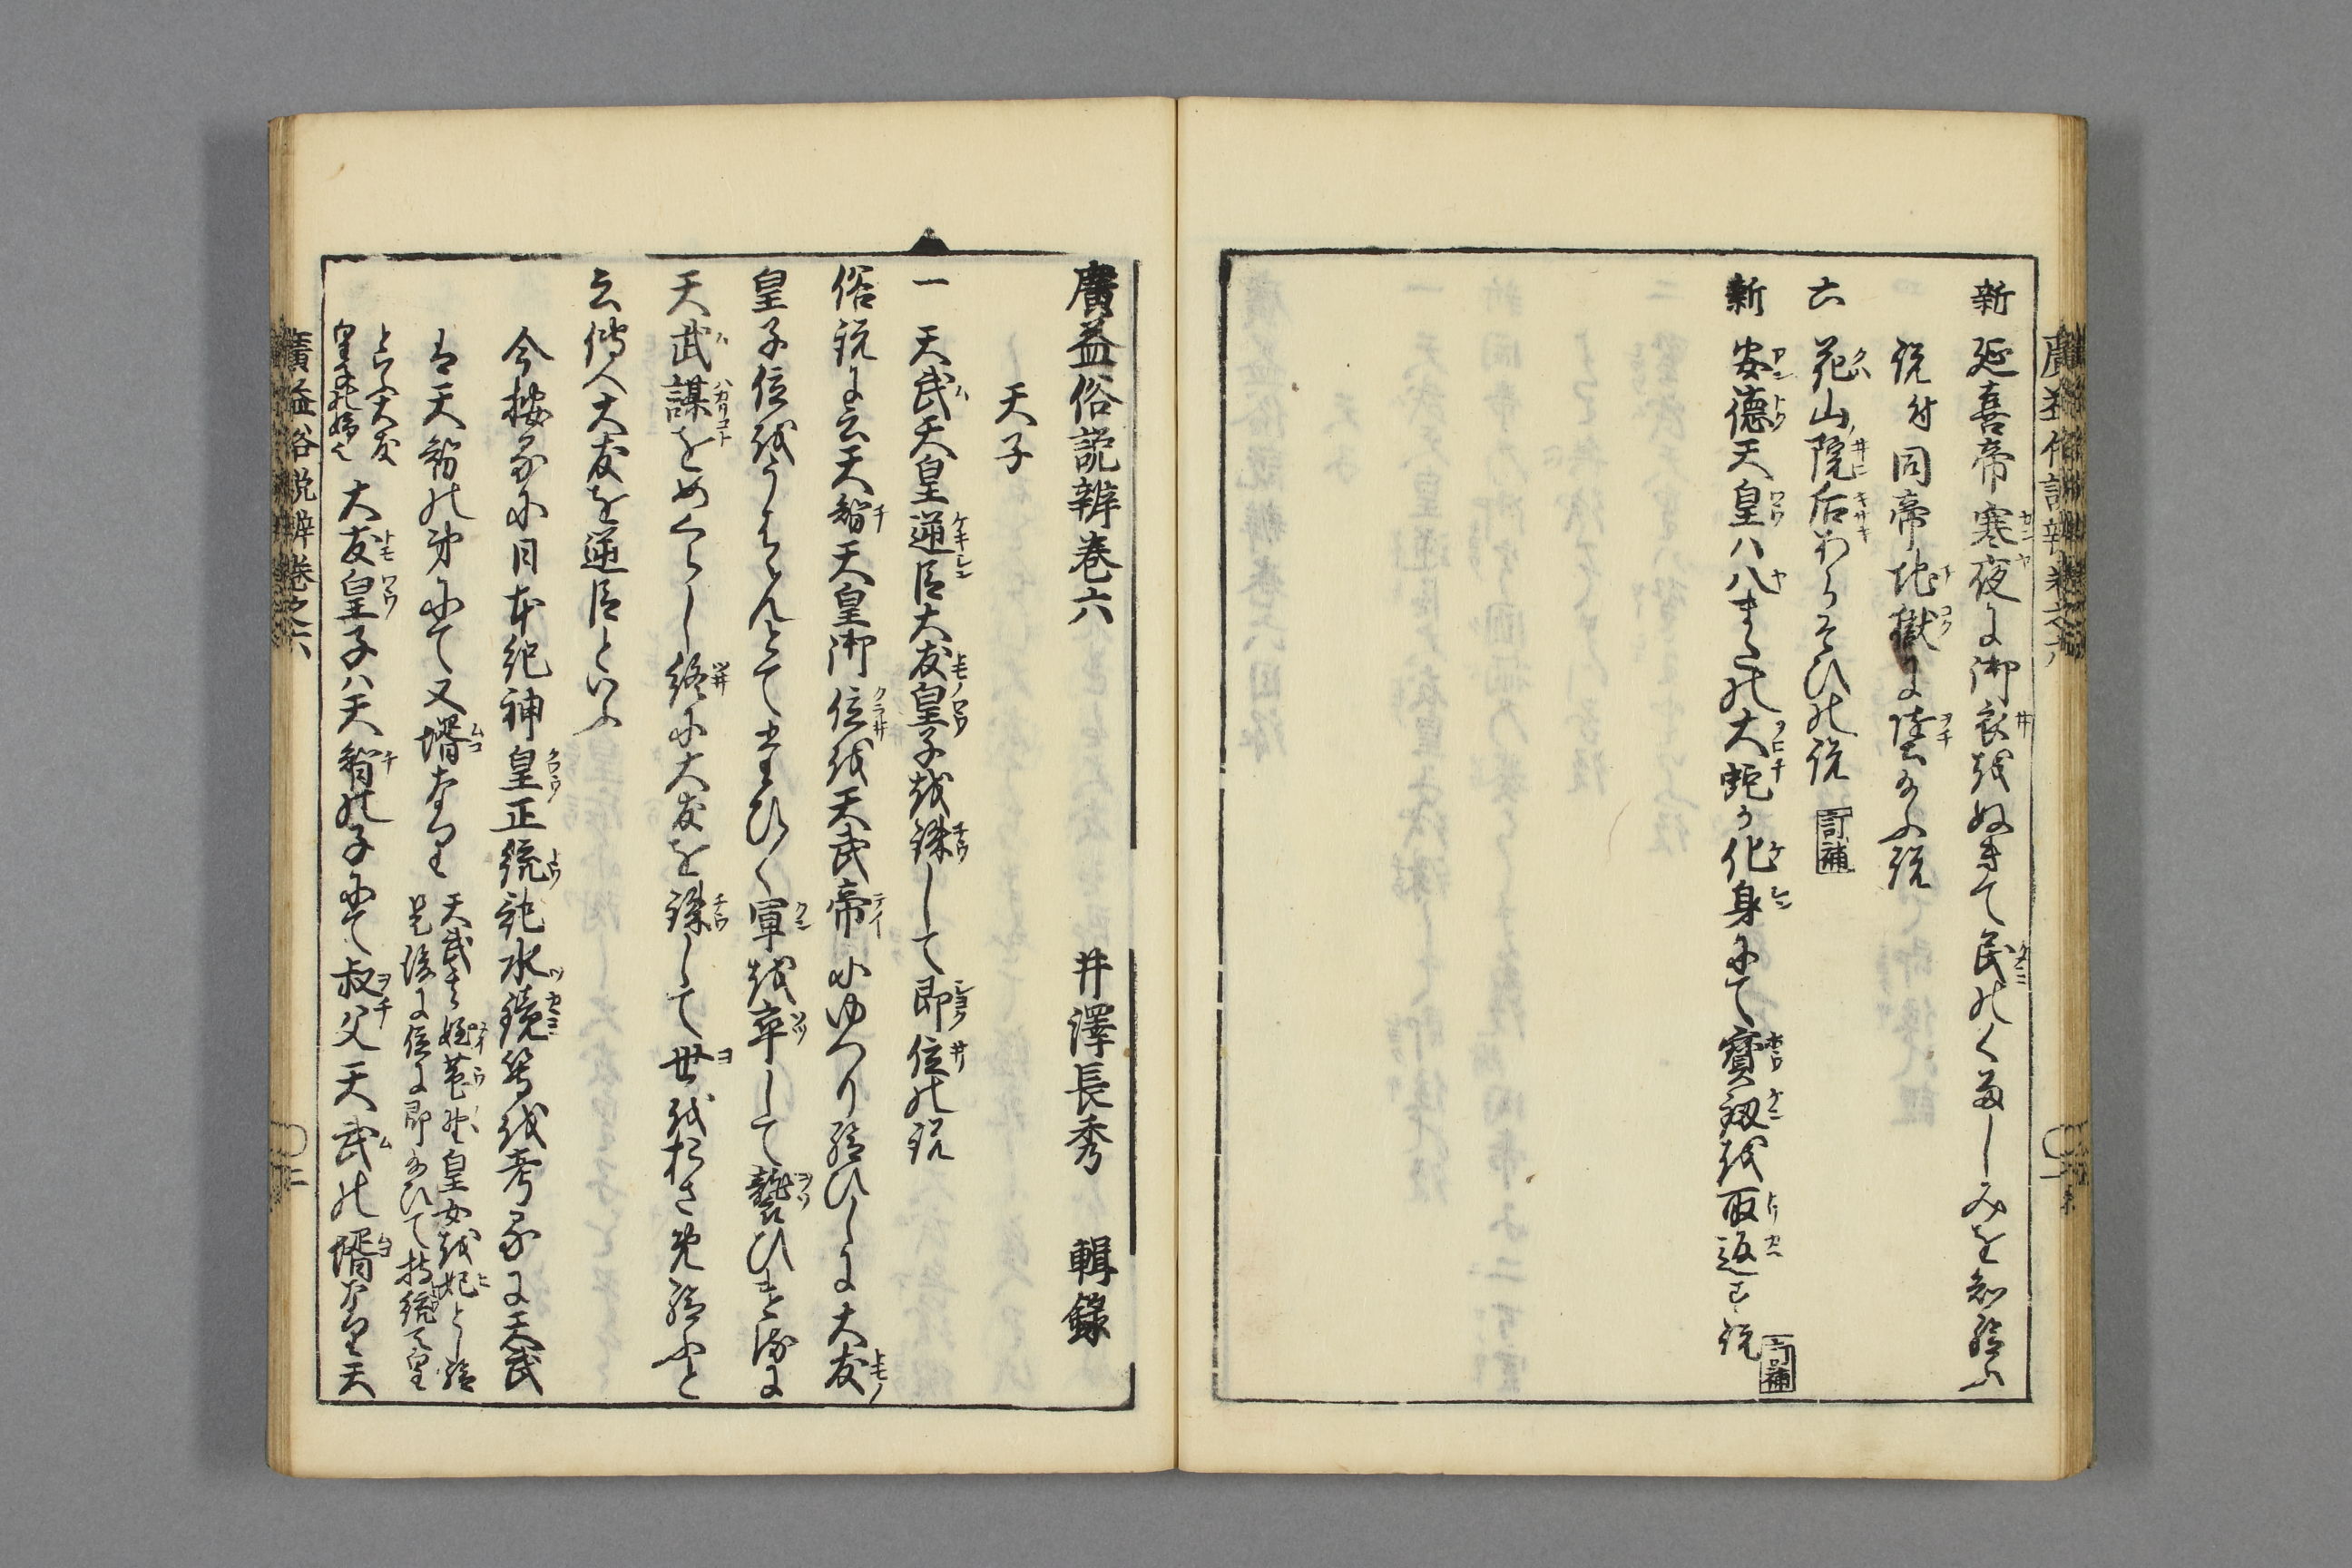 新 延喜帝寒夜に御衣をぬきて民のくるしみを知給ふ
説付同帝地獄に堕給ふ説
六 花山院后あらそひの説 訂補
新 安徳天皇ハ八またの大蛇の化身にて寶剱を取返す説 訂補
廣益俗説辨巻六 井澤長秀 輯録
天子
一 天武天皇逆臣大友皇子を誅して即位の説
俗説に云天智天皇御位を天武帝にゆつり給ひしに大友
皇子位をうはゝんとてたまひく軍を卒して襲ひける故に
天武謀をめくらし終に大友を誅して世をおさめ給ふと
云傳へ大友を逆臣といふ
今按るに日本紀神皇正統記水鏡等を考るに天武
は天智の弟にて又壻なり
天武は姪菟野皇女を妃とし給
是後に位に即給ひて持統天皇
と云ふ大友
皇子の姉也
大友皇子ハ天智の子にて叔父天武の壻なり天
廣益俗説辨巻之六
二